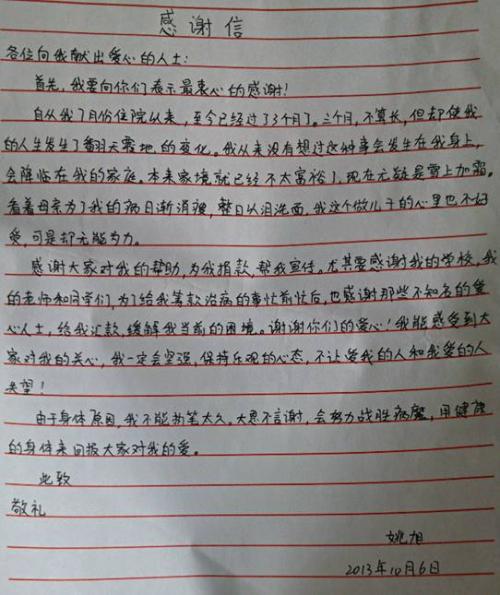 感谢信
各位向我献出爱心的人士：
首先，我要向你们表示最衷心的感谢！
自从我7月份住院以来，至今已经过了3个月了。三个月，不算长，但却使我
的人生发生了翻天覆地的变化。我从来没有想过这种事会发生在我身上，
会降临在我的家庭。本来家境就已经不太富裕了，现在无疑是雪上加霜。
看着母亲为了我的病日渐消瘦，整日以泪洗面，我这个做儿子的心里也不好
受，可是却无能为力。
感谢大家对我的帮助，为我捐款，帮我宣传。尤其要感谢我的学校，我
的老师和同学们，为了给我筹款治病的事忙前忙后，也感谢那些不知名的爱
心人士，给我汇款，缓解我当前的困境。谢谢你们的爱心！我能感受到大
家对我的关心，我一定会坚强，保持乐观的心态，不让爱我的人和我爱的人
失望！
由于身体原因，我不能执笔太久。大恩不言谢，会努力战胜病魔，用健康
的身体来回报大家对我的爱。
此致
敬礼
姚旭
2013年10月6日